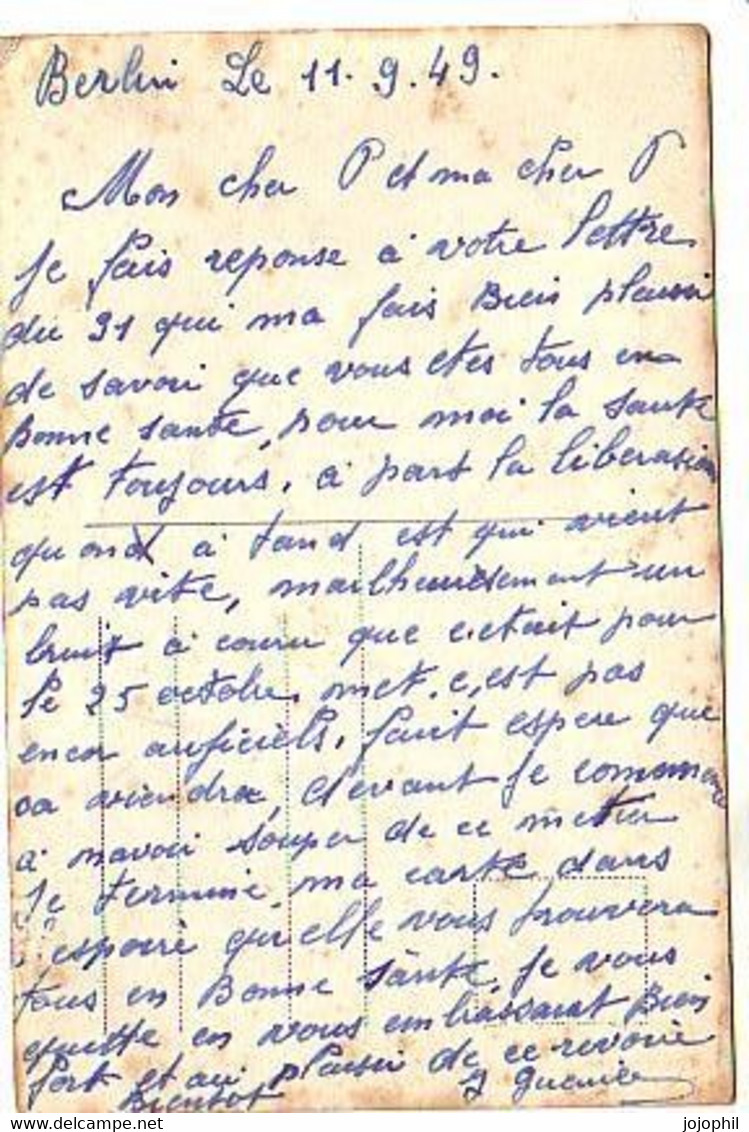 Berlin Le 11.9.49.
Mon cher P et ma cher P
Je fais reponse à votre lettre
du 31 qui ma fais Bien plaisir
de savoir que vous etes tous en
Bonne sante, pour moi la sante
est toujours, à part la liberasion
quand à tand est qui vient
pas vite, malheuresement un
bruit à couru que c'etait pour
le 25 octobre, met, c,est pas
encor auficiels, faut espere que
sa viendra, devant je commence
à navoir souper de ce metier
Je termine ma carte dans
l'espoire qu'elle vous trouvera
tous en Bonne sante, Je vous
quitte en vous embrassant Bien
fort et au plaisir de ce revoir
Bientot
jojophil